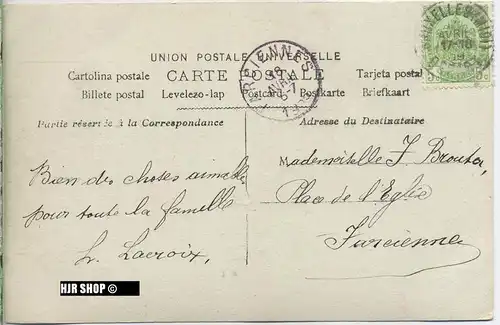 UNION POSTALE UNIVERSELLE
Cartolina postale CARTE POSTALE Tarjeta postal
Billete postal Levelezo-lap Postcard Postkarte Briefkaart
Partie réservée à la Correspondance
Adresse du Destinataire
Bien des choses aimables
pour toute la famille
Lacroix,
Mademoiselle J. Brouta,
Place de l'Eglise
Farcienne
HJR SHOP ©